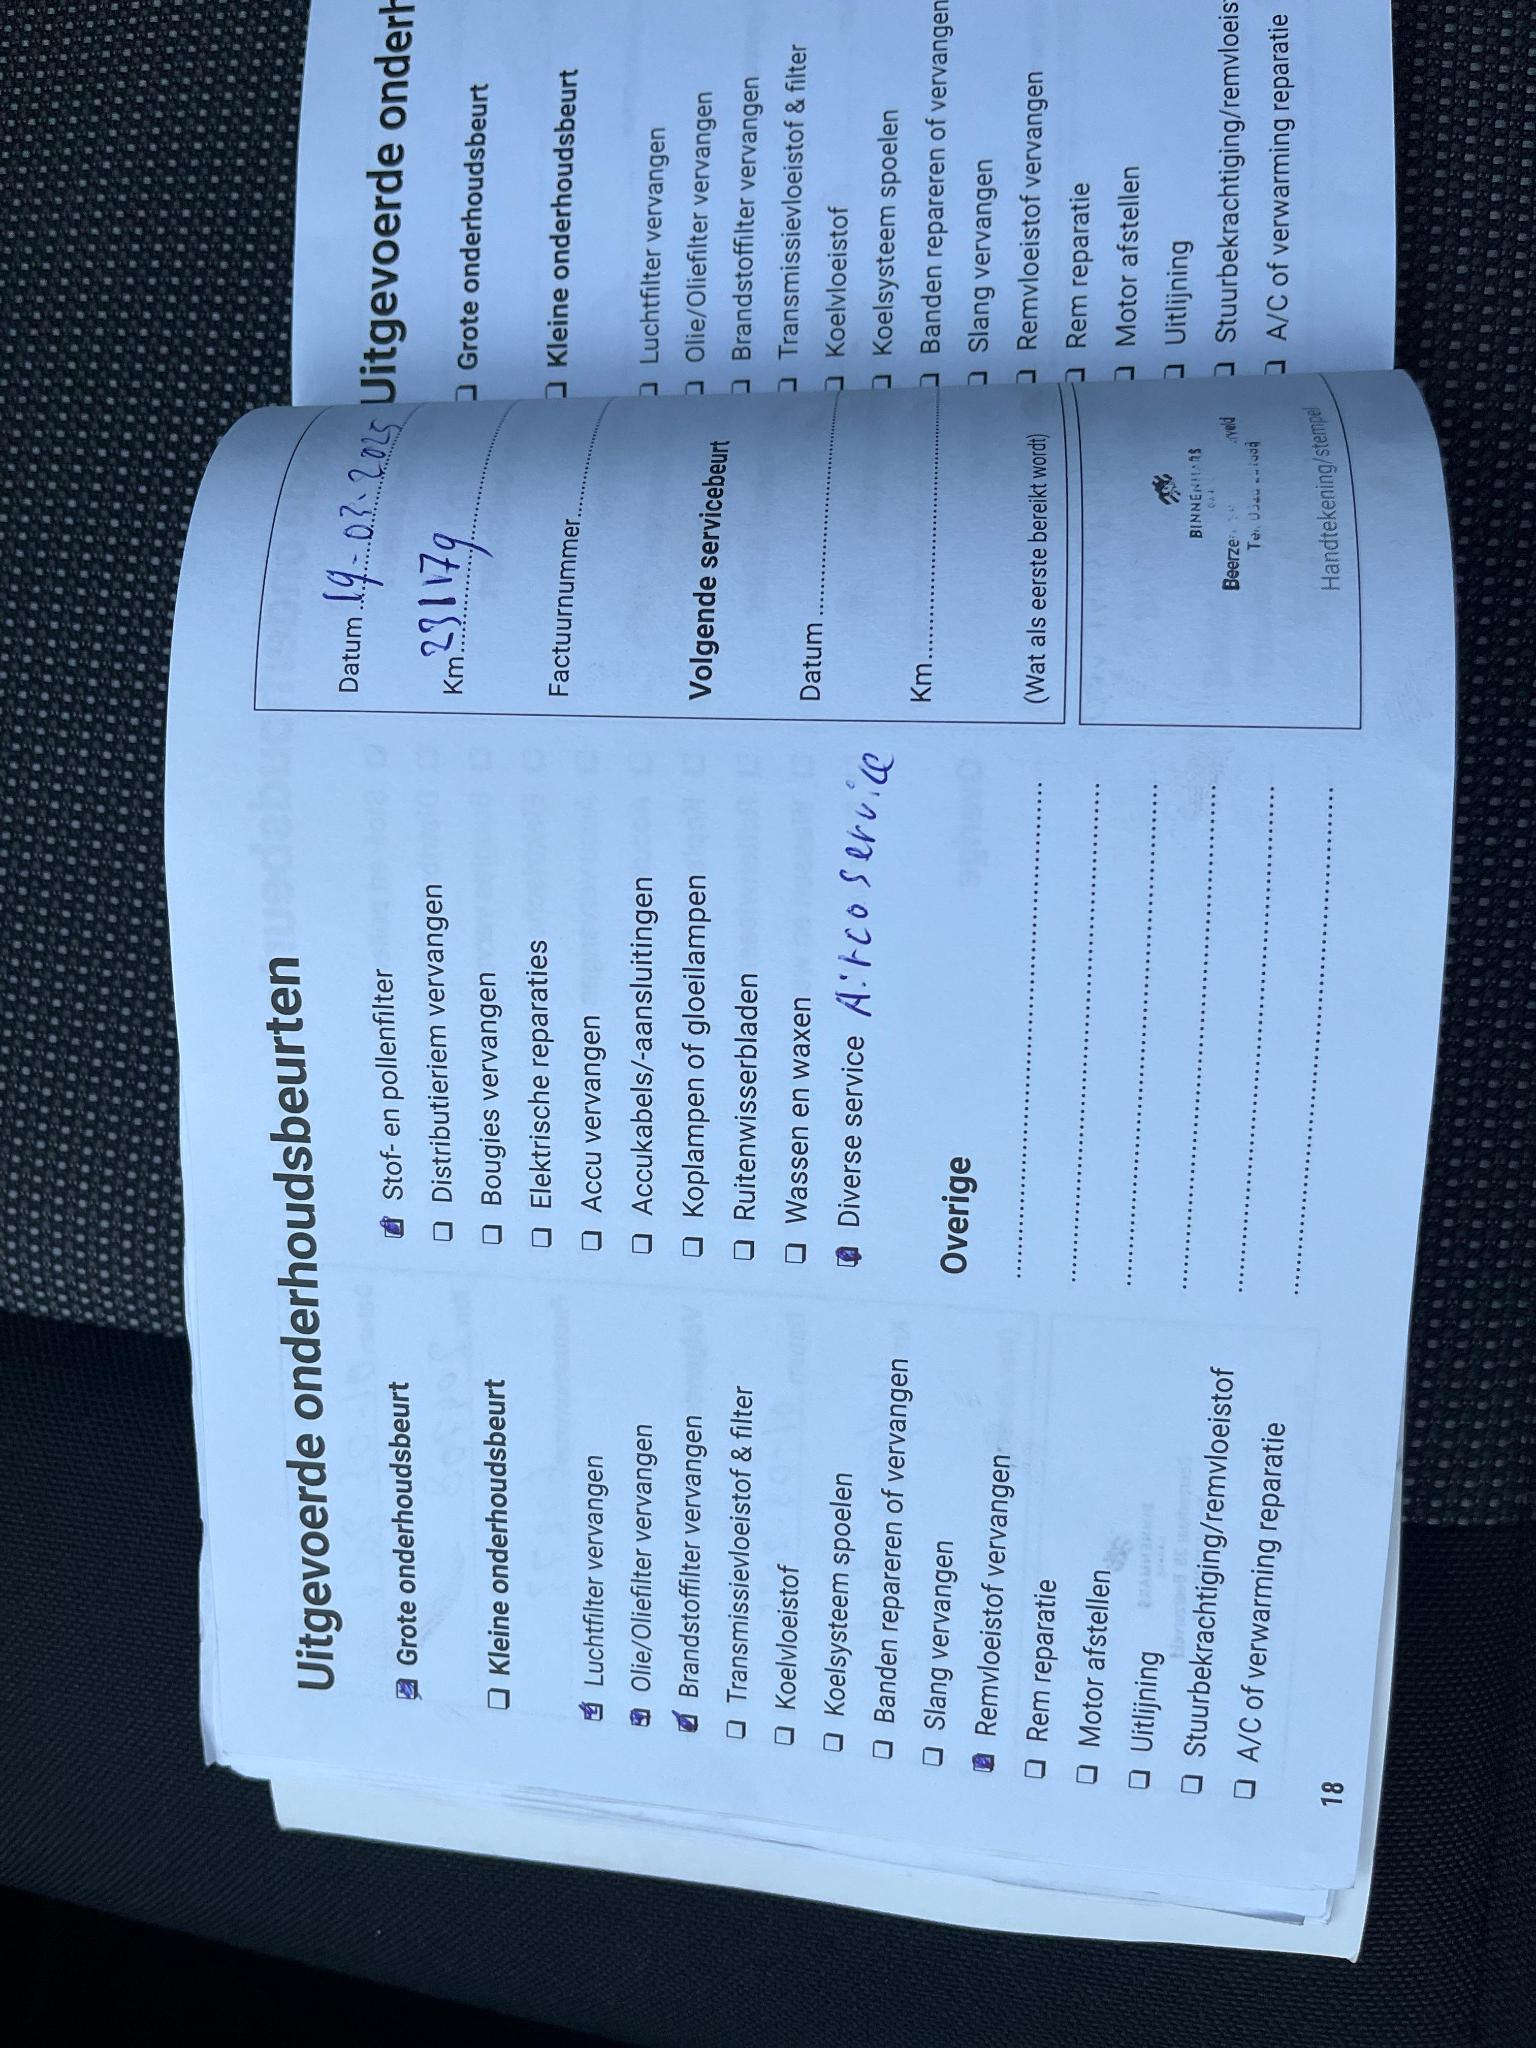 Uitgevoerde onderhoudsbeurten
Grote onderhoudsbeurt
Kleine onderhoudsbeurt
Luchtfilter vervangen
Olie/Oliefilter vervangen
Brandstoffilter vervangen
Transmissievloeistof & filter
Koelvloeistof
Koelsysteem spoelen
Banden repareren of vervangen
Slang vervangen
Remvloeistof vervangen
Rem reparatie
Motor afstellen
Uitlijning
Stuurbekrachtiging/remvloeistof
A/C of verwarming reparatie
18
Stof- en pollenfilter
Distributieriem vervangen
Bougies vervangen
Elektrische reparaties
Accu vervangen
Accukabels/-aansluitingen
Koplampen of gloeilampen
Ruitenwisserbladen
Wassen en waxen
Diverse service Aircoservice
Overige
Datum 19-03-2025
Km 231179
Factuurnummer
Volgende servicebeurt
Datum
Km
(Wat als eerste bereikt wordt)
BINNENMARS
Handtekening/stempel
Uitgevoerde onderh
Grote onderhoudsbeurt
Kleine onderhoudsbeurt
Luchtfilter vervangen
Olie/Oliefilter vervangen
Brandstoffilter vervangen
Transmissievloeistof & filter
Koelvloeistof
Koelsysteem spoelen
Banden repareren of vervangen
Slang vervangen
Remvloeistof vervangen
Rem reparatie
Motor afstellen
Uitlijning
Stuurbekrachtiging/remvloeis
A/C of verwarming reparatie